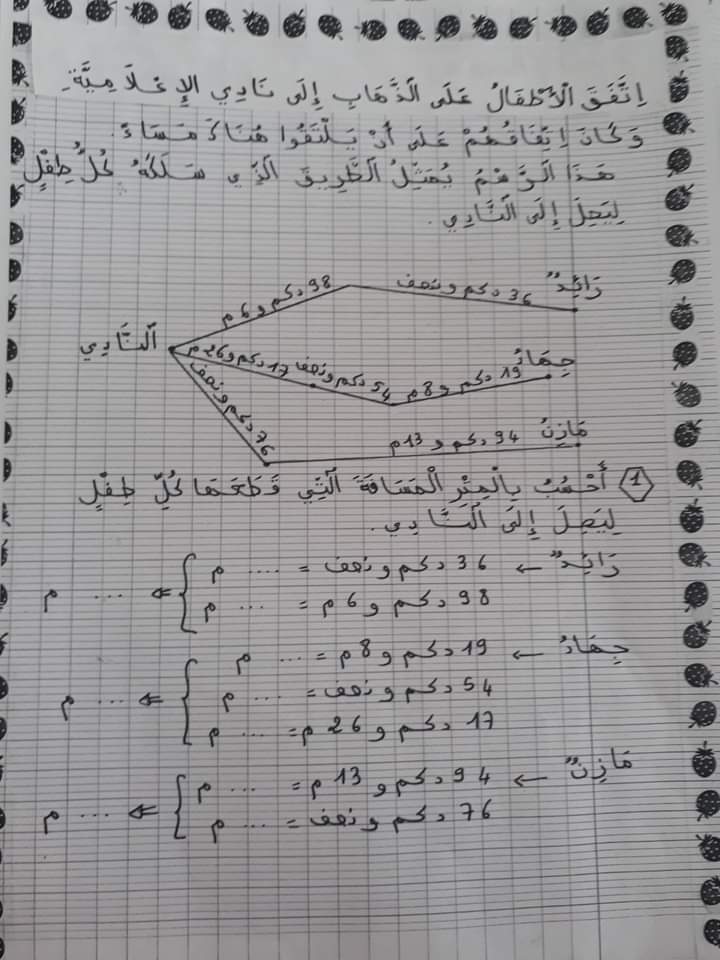 اِتَّفَقَ الْأَطْفَالُ عَلَى الذَّهَابِ إِلَى نَادِي الإِعْلَامِيَّةِ.
وَكَانَ اِتِّفَاقُهُمْ عَلَى أَنْ يَلْتَقُوا هُنَاكَ مَسَاءً.
هَذَا الرَّسْمُ يُمَثِّلُ الطَّرِيقَ الَّذِي سَلَكَهُ كُلُّ طِفْلٍ
لِيَصِلَ إِلَى النَّادِي.
رَائِدٌ
36 دكم ونصف
98 دكم و 6 م
جِهَادُ
19 دكم و 8 م
54 دكم ونصف
17 دكم و 26 م
النَّادِي
مَازِنُ
94 دكم و 13 م
76 دكم ونصف
1 أَحْسُبُ بِالْمِتْرِ الْمَسَافَةَ الَّتِي قَطَعَهَا كُلُّ طِفْلٍ
لِيَصِلَ إِلَى النَّادِي.
رَائِدٌ ← 36 دكم ونصف = .... م
98 دكم و 6 م = ... م ⇐ ... م
جِهَادُ ← 19 دكم و 8 م = ... م
54 دكم ونصف = ... م ⇐ ... م
17 دكم و 26 م = ... م
مَازِنٌ ← 94 دكم و 13 م = ... م
76 دكم ونصف = ... م ⇐ ... م